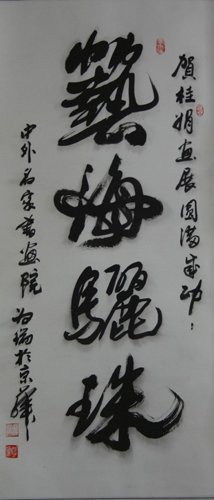 賀桂娟畫展圓滿成功：
藝海驪珠
中外名家書畫院
為瑞於京華